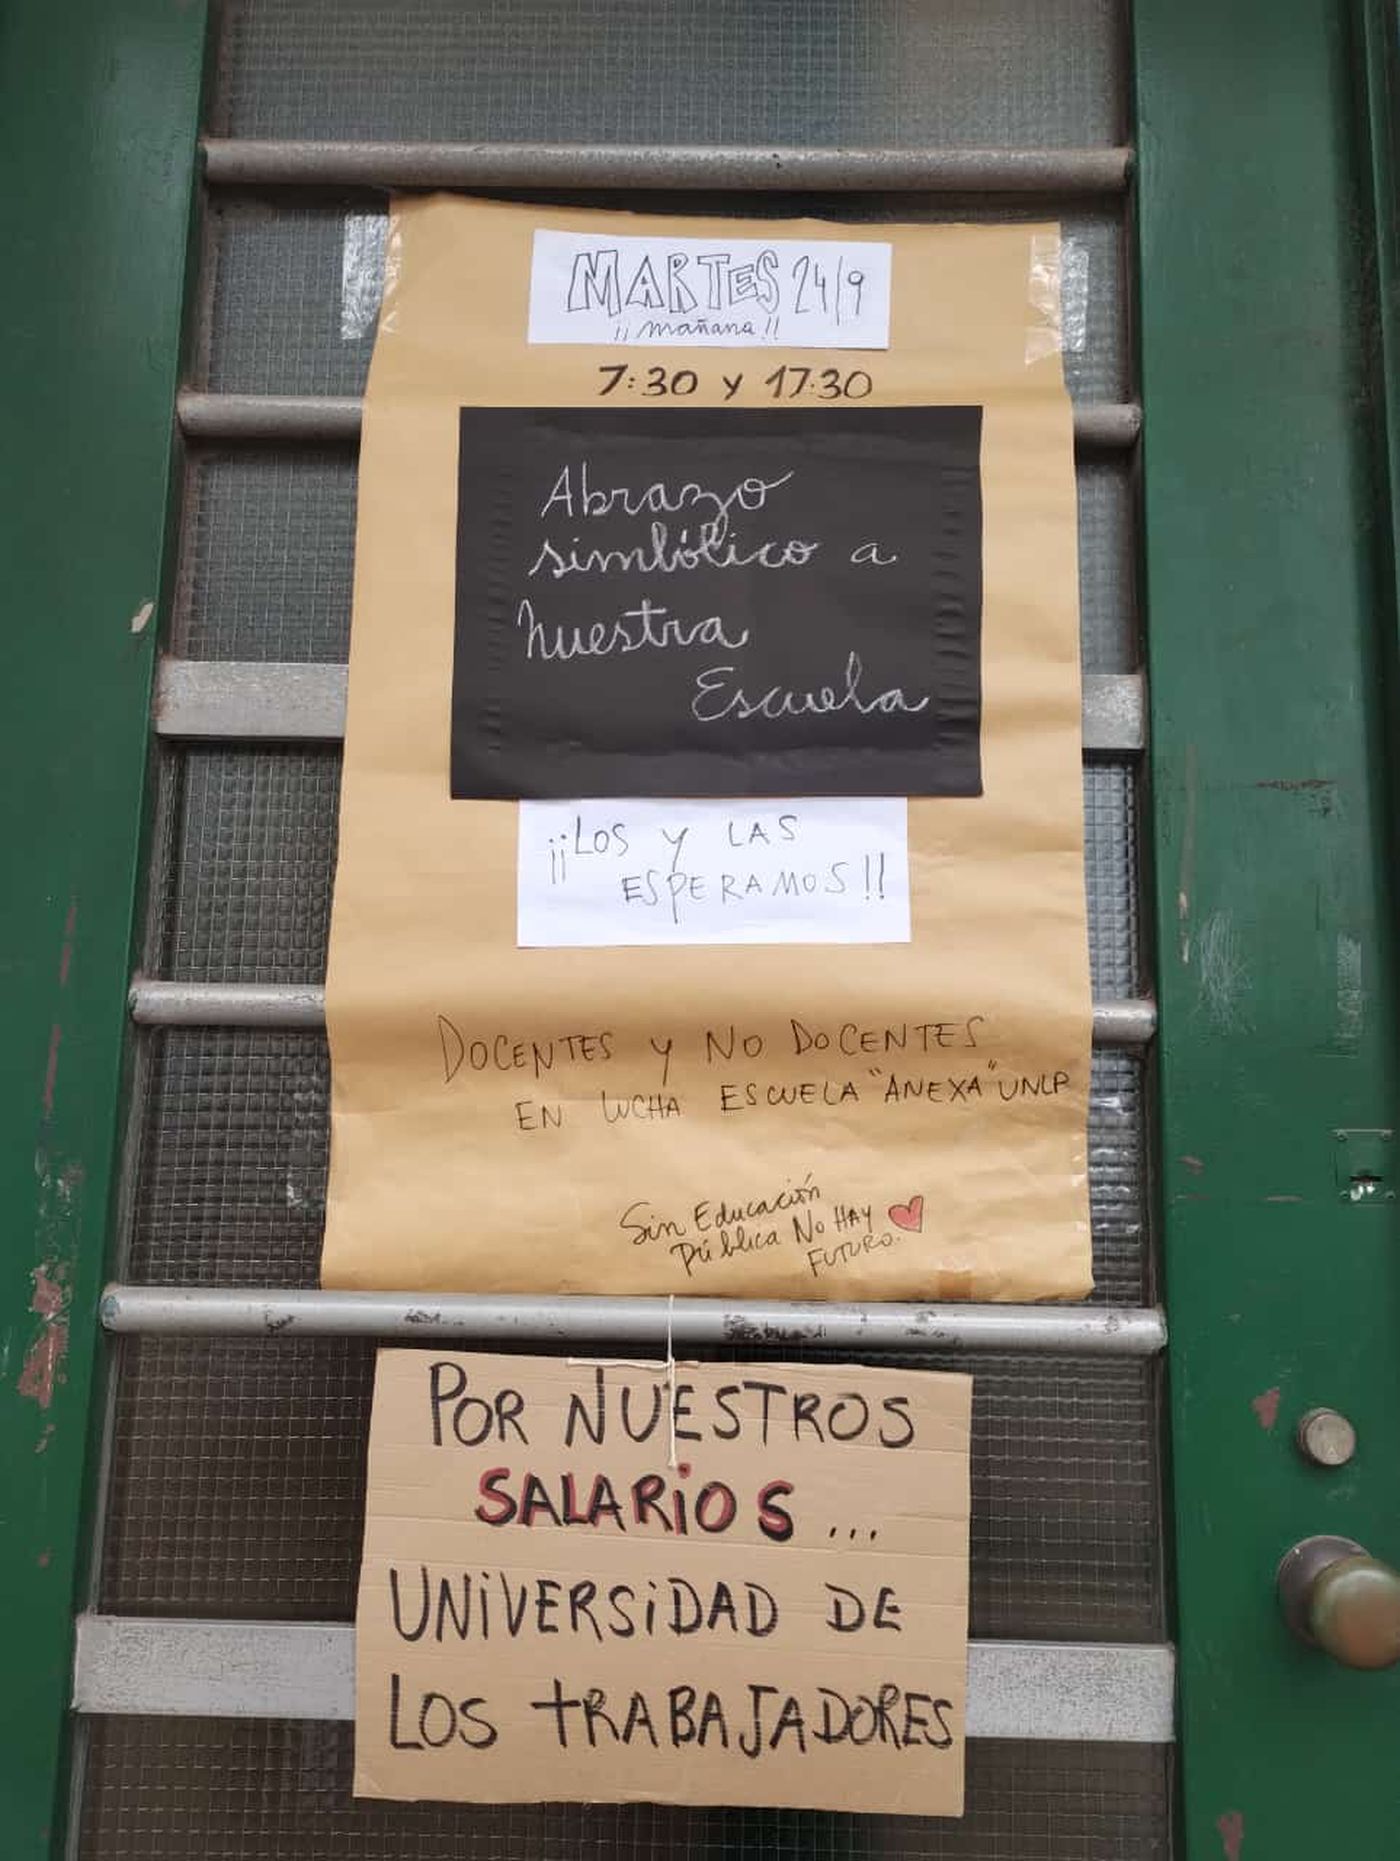 MARTES 24/9
¡¡mañana!!
7:30 y 17:30
Abrazo
simbólico a
Nuestra
Escuela
¡¡LOS y LAS
ESPERAMOS!!
DOCENTES y NO DOCENTES
EN LUCHA ESCUELA "ANEXA" UNLP
Sin Educación
Pública No HAY
FUTURO.
POR NUESTROS
SALARIOS...
UNIVERSIDAD DE
LOS TRABAJADORES